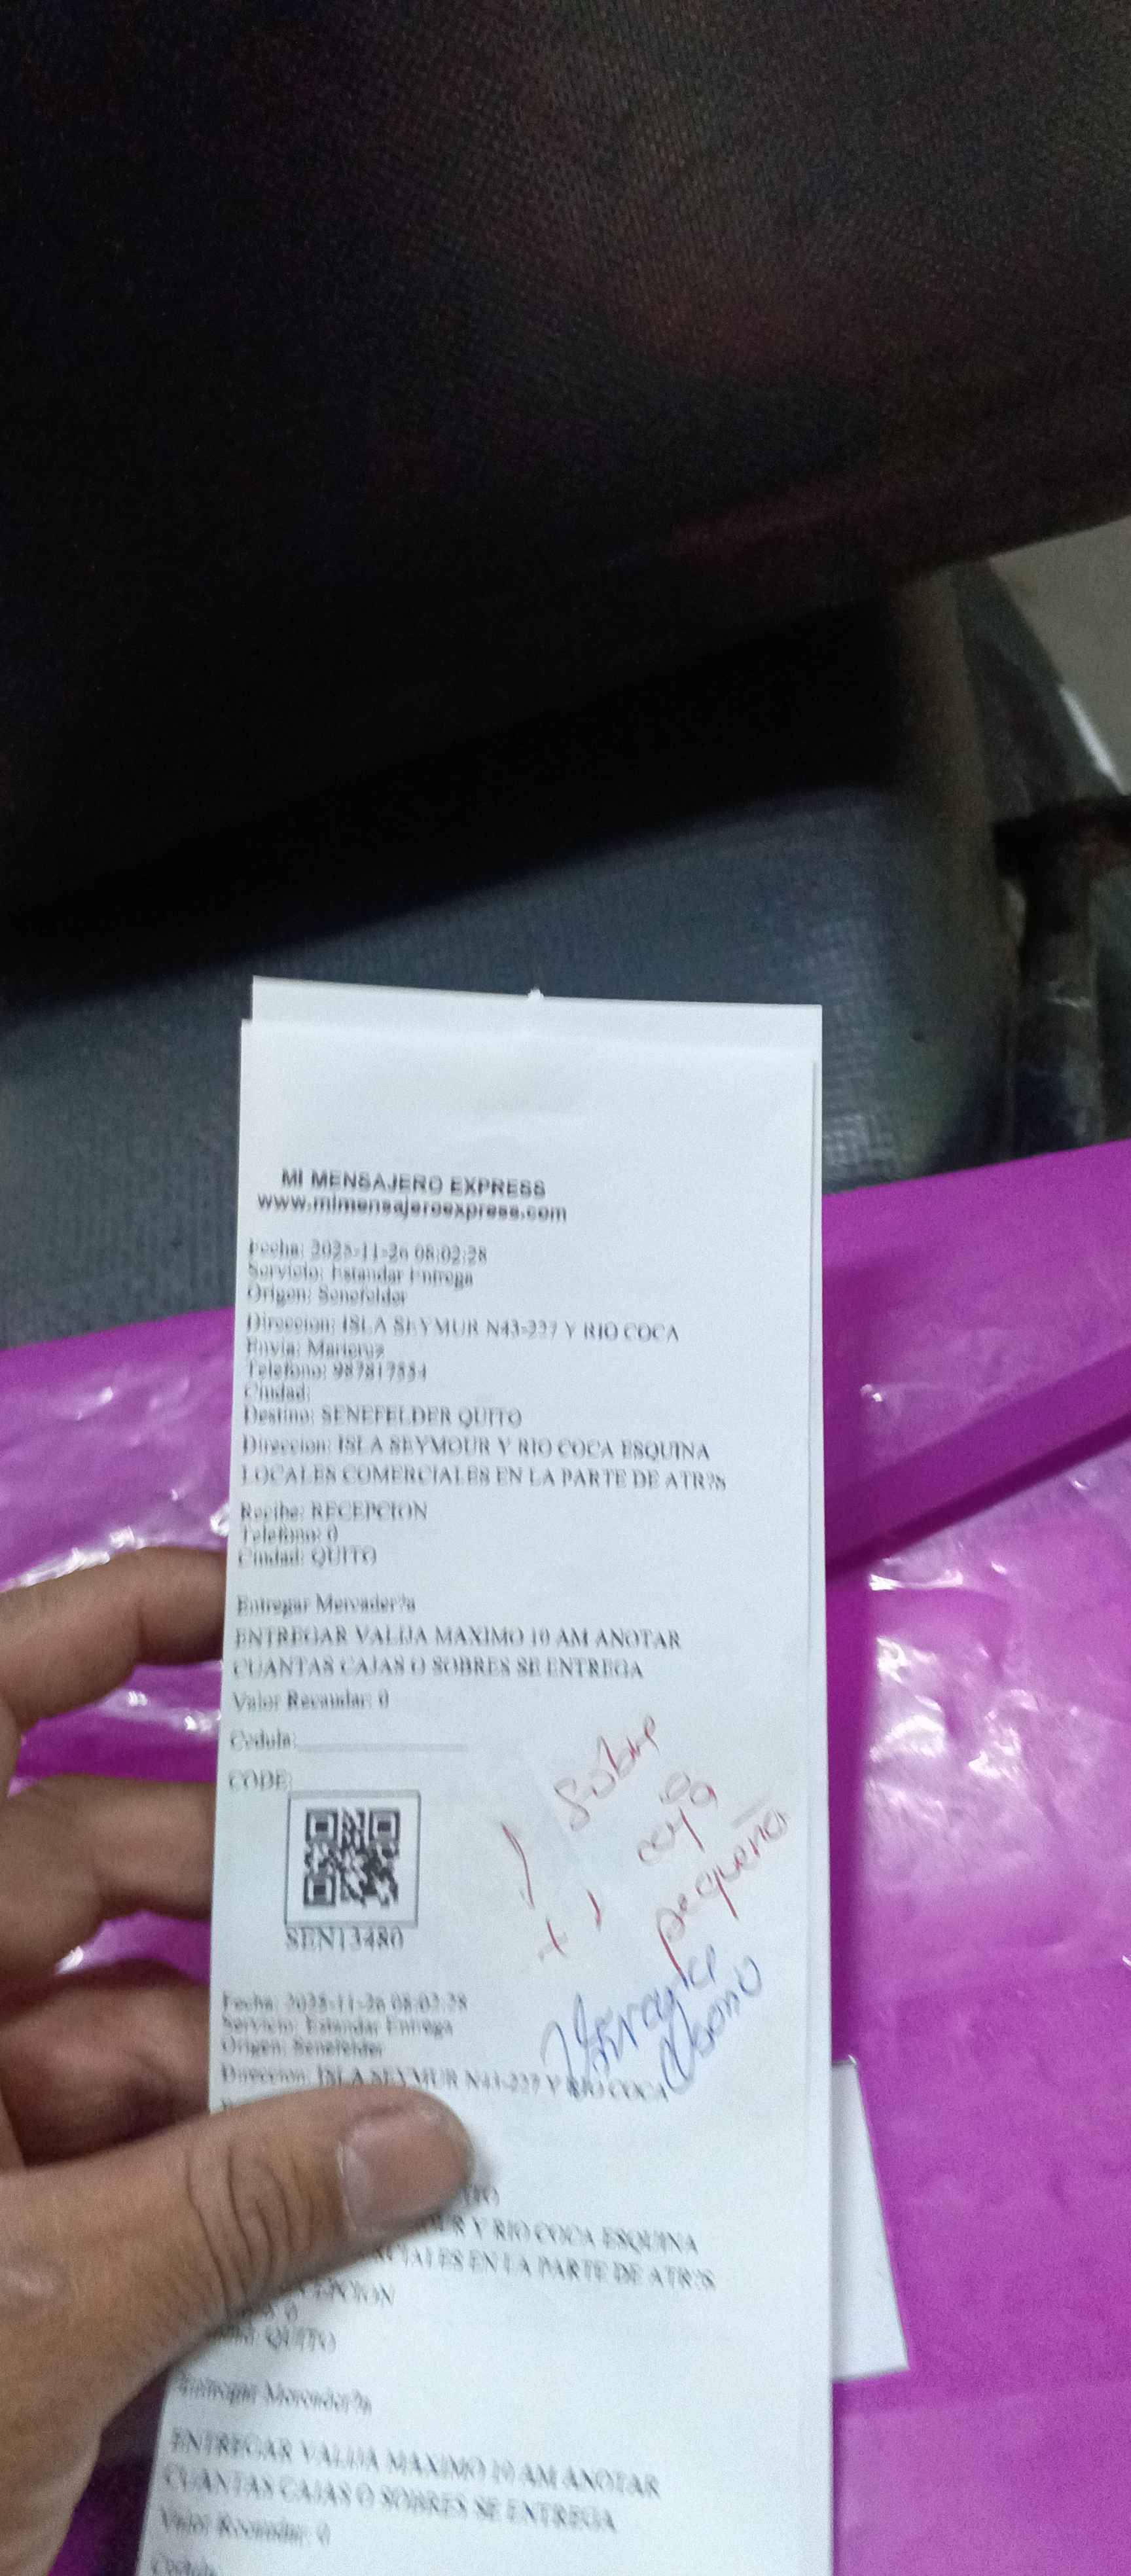 MI MENSAJERO EXPRESS
www.mimensajeroexpress.com
Fecha: 2025-11-26 08:02:28
Servicio: Estandar Entrega
Origen: Senefelder
Direccion: ISLA SEYMUR N43-227 Y RIO COCA
Envia: Maricruz
Telefono: 987817554
Ciudad:
Destino: SENEFELDER QUITO
Direccion: ISLA SEYMOUR Y RIO COCA ESQUINA
LOCALES COMERCIALES EN LA PARTE DE ATR?S
Recibe: RECEPCION
Telefono: 0
Ciudad: QUITO
Entregar Mercader?a
ENTREGAR VALIJA MAXIMO 10 AM ANOTAR
CUANTAS CAJAS O SOBRES SE ENTREGA
Valor Recaudar: 0
Cedula:
CODE:
SEN13480
1 sobre
+ 1 caja
pequeña
Fecha: 2025-11-26 08:02:28
Servicio: Estandar Entrega
Origen: Senefelder
Direccion: ISLA SEYMUR N43-227 Y RIO COCA
ITO
OUR Y RIO COCA ESQUINA
RCIALES EN LA PARTE DE ATR?S
CEPCION
0
QUITO
Entregar Mercader?a
ENTREGAR VALIJA MAXIMO 10 AM ANOTAR
CUANTAS CAJAS O SOBRES SE ENTREGA
Valor Recaudar: 0
Cedula